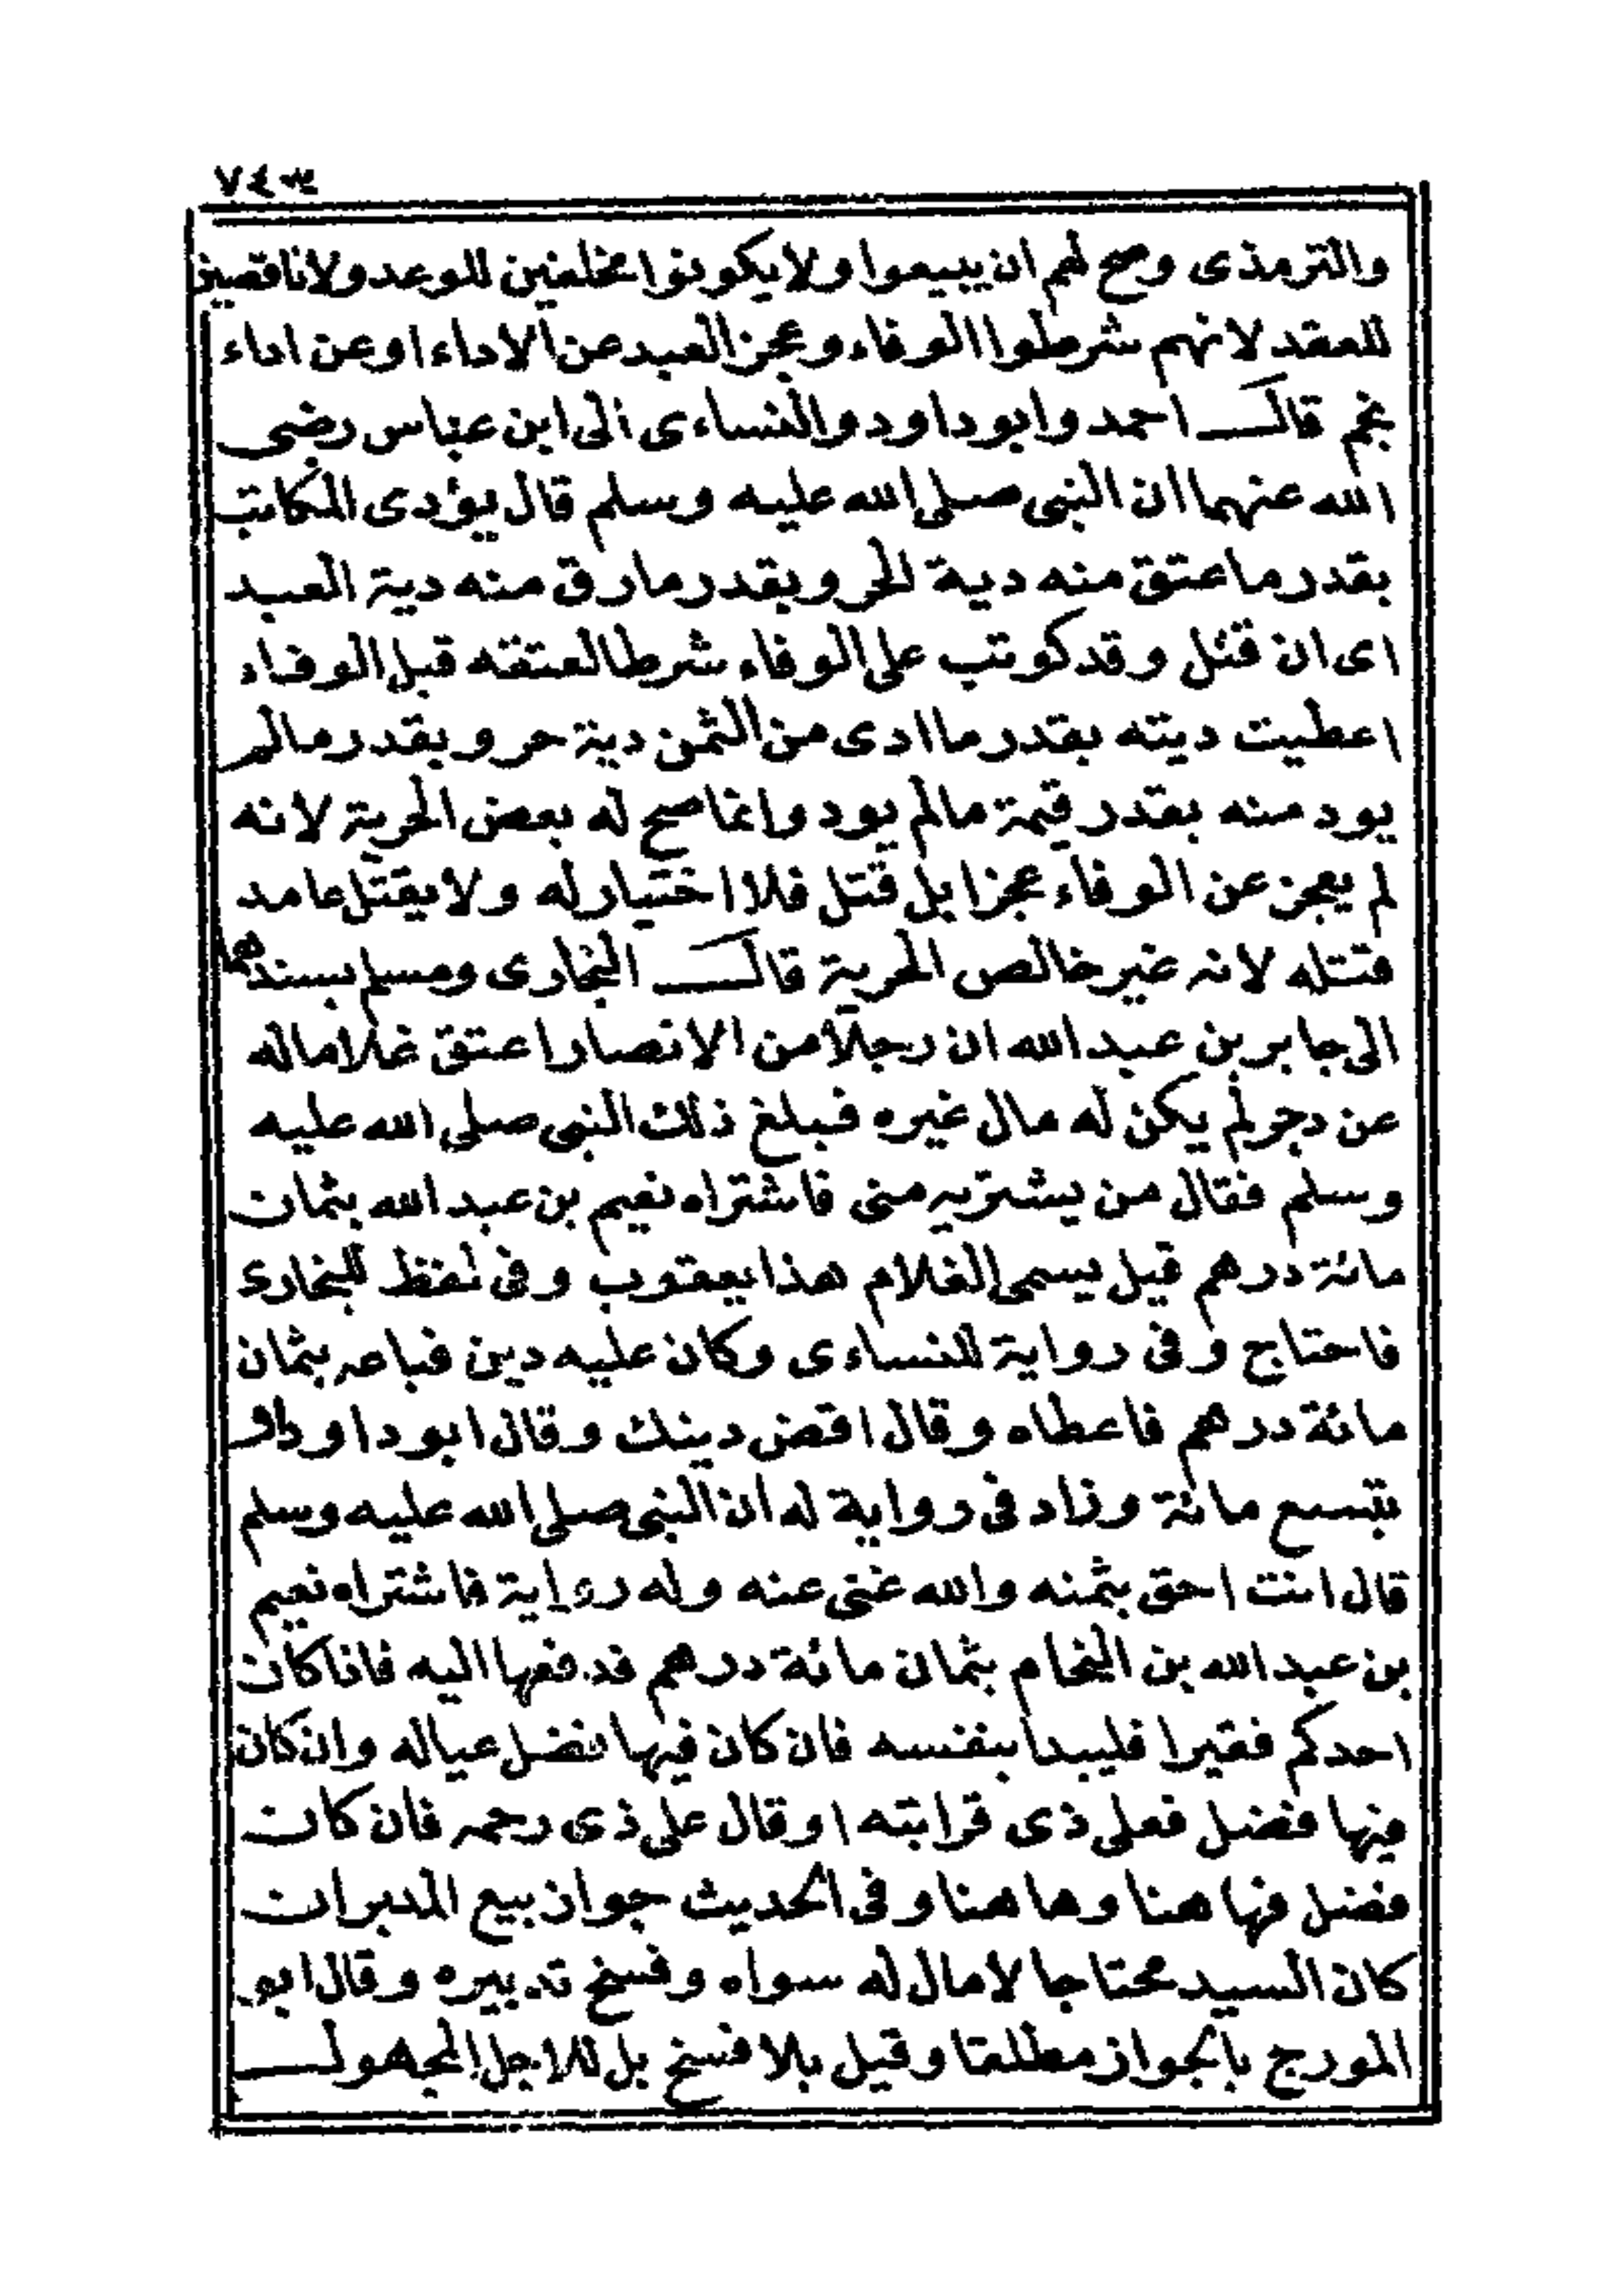 ٧٤٣
والترمذى وصح لهم ان يبيعوا ولا يكونوا مخلفين للوعد ولا ناقضين
للعقد لانهم شرطوا الوفاء وعجز العبد عن الاداء او عن اداء
نجم قال احمد وابو داود والنساءى الى ابن عباس رضى
الله عنهما ان النبى صلى الله عليه وسلم قال يؤدى المكاتب
بقدر ما عتق منه دية الحر وبقدر مارق منه دية العبد
اى ان قتل وقد كوتب على الوفاء شرطا لعتقه قبل الوفاء
اعطيت ديته بقدر ما ادى من الثمن دية حر وبقدر مالم
يود منه بقدر قيمة مالم يود وانما صح له بعض الحرية لانه
لم يعجز عن الوفاء عجزا بل قتل فلا اختيار له ولا يقتل عامد
قتله لانه غير خالص الحرية قال البخارى ومسلم بسندهما
الى جابر بن عبد الله ان رجلا من الانصار اعتق غلاما له
عن دبر لم يكن له مال غيره فبلغ ذلك النبى صلى الله عليه
وسلم فقال من يشتريه منى فاشتراه نعيم بن عبد الله بثمان
مائة درهم قيل يسمى الغلام هذا يعقوب وفى لفظ للبخارى
فاحتاج وفى رواية للنساءى وكان عليه دين فباعه بثمان
مائة درهم فاعطاه وقال اقض دينك وقال ابو داود او
بتسع مائة وزاد فى رواية له ان النبى صلى الله عليه وسلم
قال انت احق بثمنه والله غنى عنه وله رواية فاشتراه نعيم
بن عبد الله بن النحام بثمان مائة درهم فدفعها اليه فاذا كان
احدكم فقيرا فليبدا بنفسه فان كان فيها فضل عياله وان كان
فيها فضل فعلى ذى قرابته او قال على ذى رحمه فان كان
فضل فها هنا وها هنا وفى الحديث جواز بيع المدبر ان
كان السيد محتاجا لا مال له سواه وفسخ تدبيره وقال ابو
المورج بالجواز مطلقا وقيل بلا فسخ بل للاجل المجهول